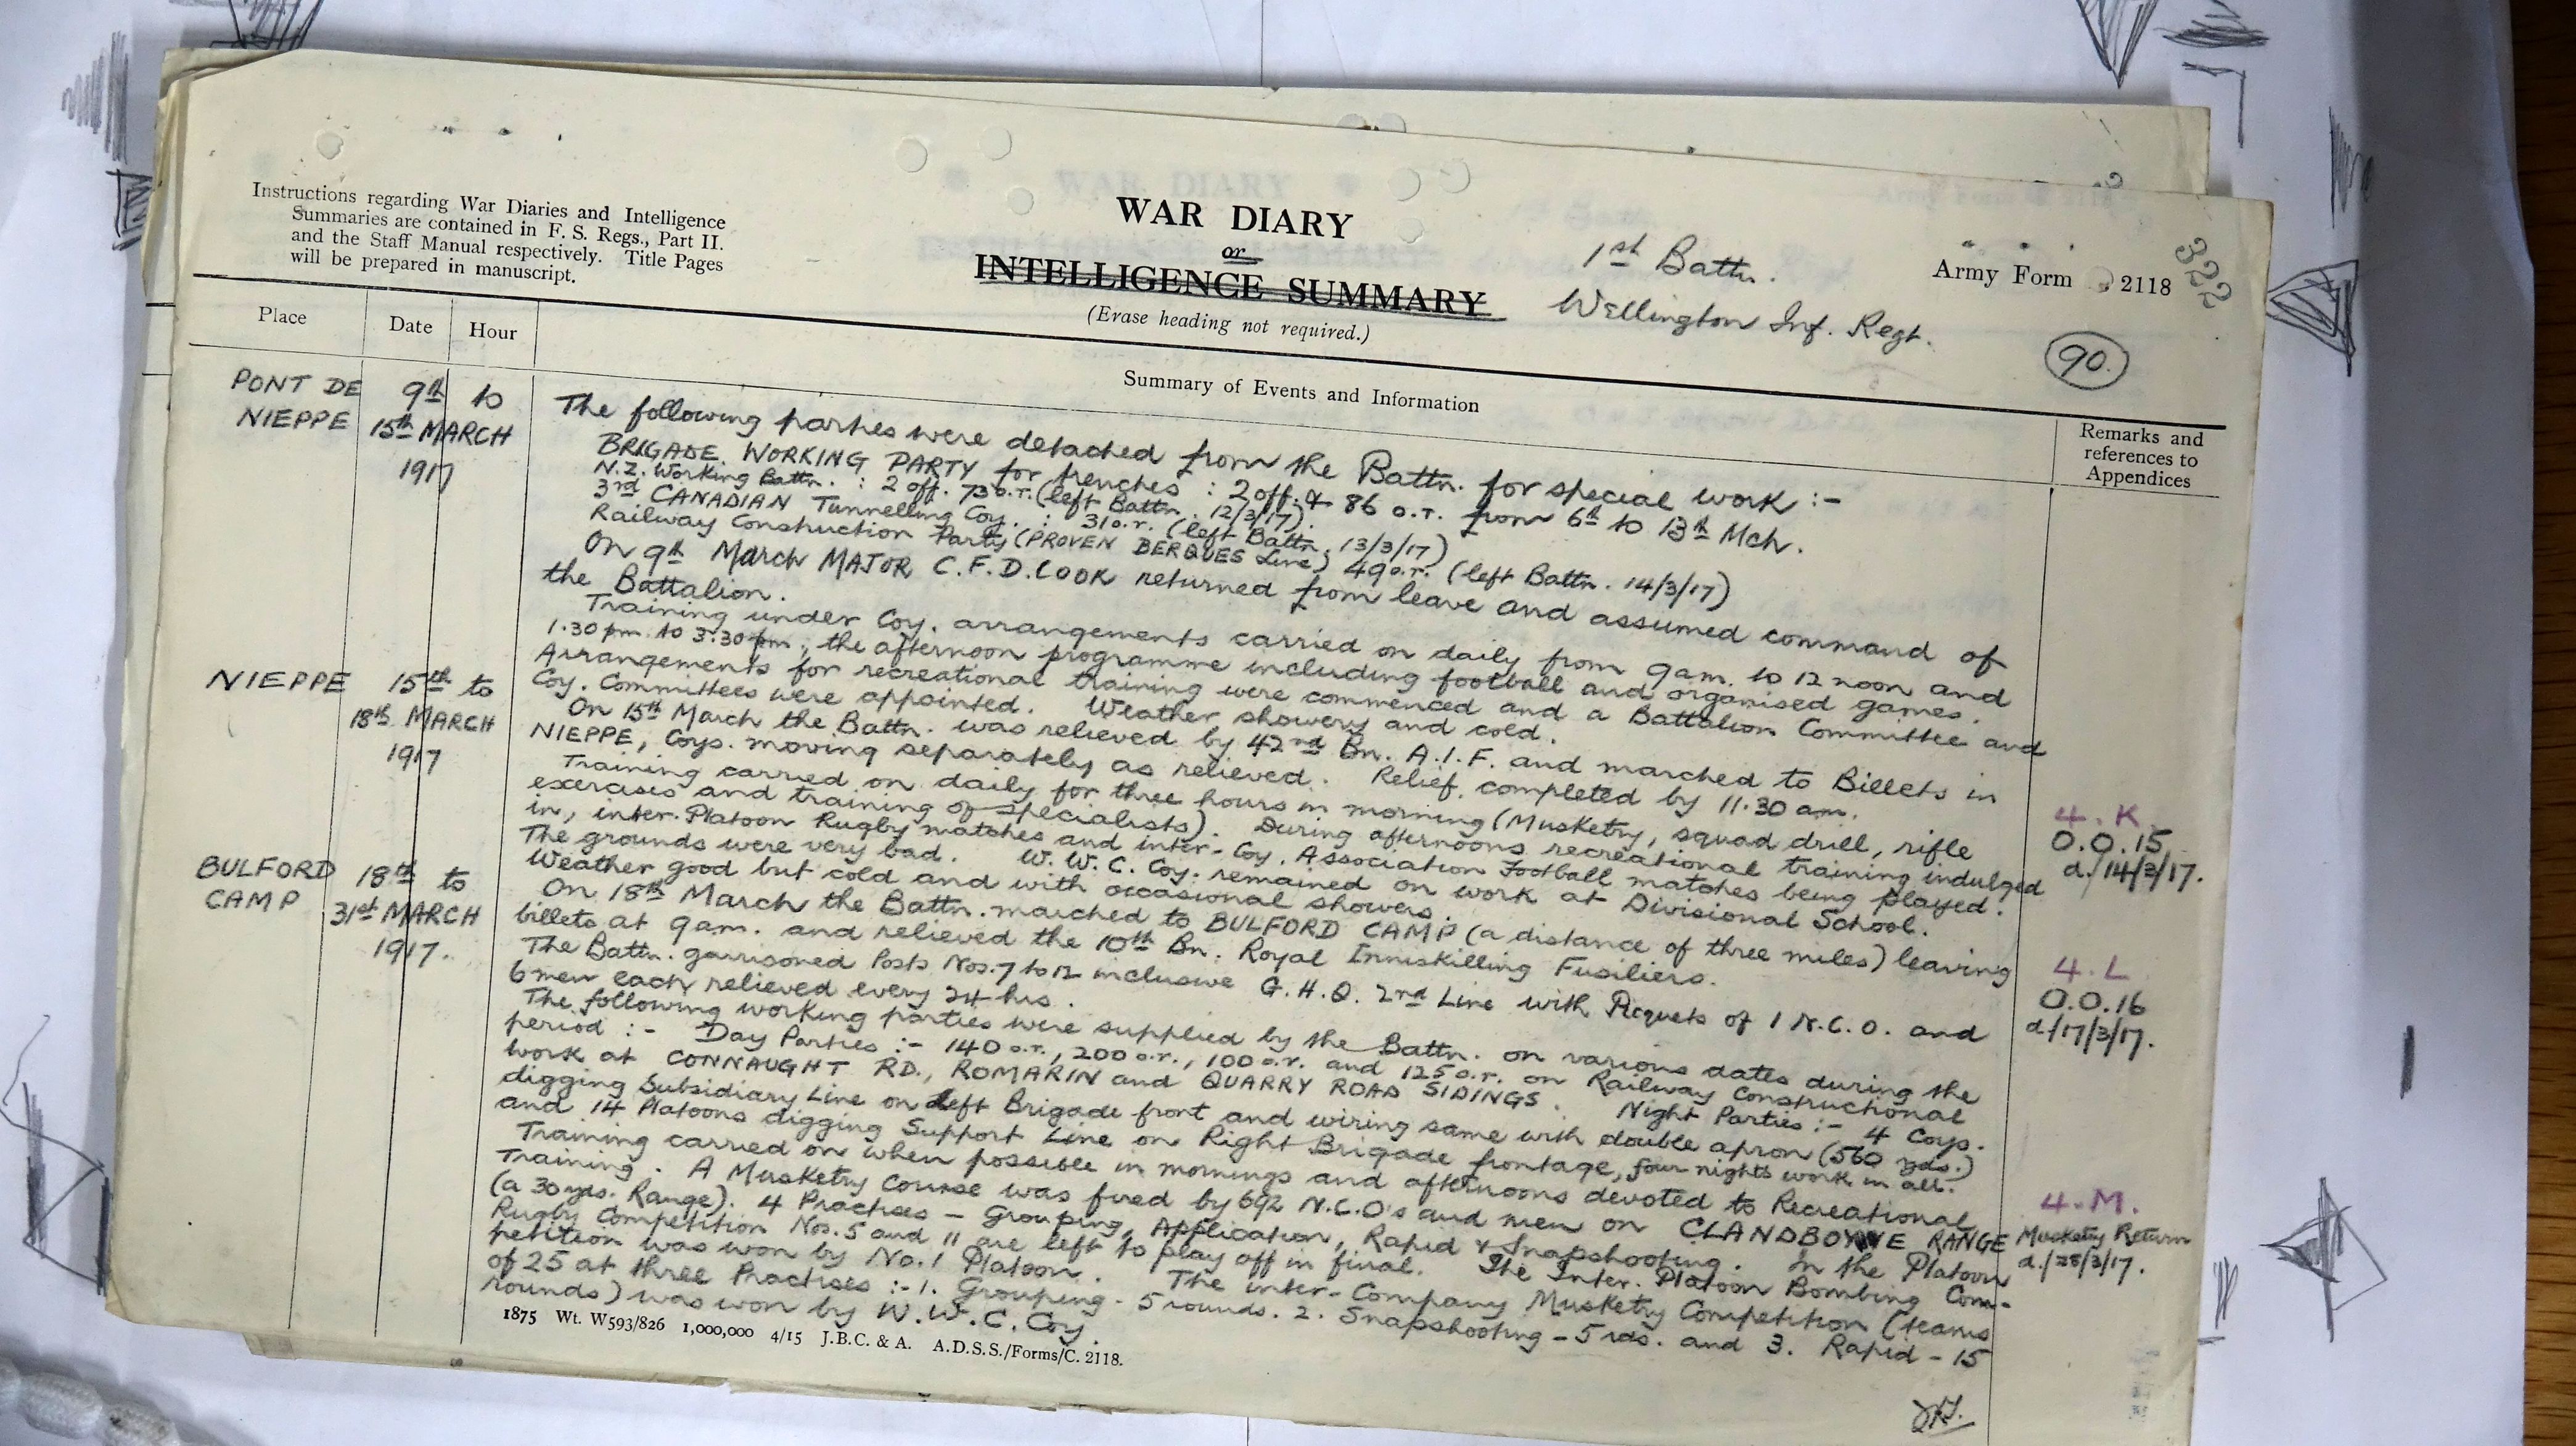 Instructions regarding War Diaries and Intelligence
Summaries are contained in F. S. Regs., Part II.
and the Staff Manual respectively. Title Pages
will be prepared in manuscript.
WAR DIARY
or
INTELLIGENCE SUMMARY
(Erase heading not required.)
1st Battn.
Wellington Inf. Regt.
Army Form 2118
322
90.
Place
Date
Hour
Summary of Events and Information
Remarks and
references to
Appendices
PONT DE
NIEPPE
9th to
15th MARCH
1917
The following parties were detached from the Battn. for special work :-
BRIGADE WORKING PARTY for trenches : 2 off. & 86 o.r. from 6th to 13th Mch.
N.Z. Working Battn. : 2 off. 73 o.r. (left Battn. 12/3/17).
3rd CANADIAN Tunnelling Coy. : 31 o.r. (left Battn. 13/3/17)
Railway Construction Party (PROVEN BERQUES Line) 49 o.r. (left Battn. 14/3/17)
On 9th March MAJOR C.F.D. COOK returned from leave and assumed command of
the Battalion.
Training under Coy. arrangements carried on daily from 9 am. to 12 noon and
1.30 pm. to 3.30 pm., the afternoon programme including football and organised games.
Arrangements for recreational training were commenced and a Battalion Committee and
Coy. Committees were appointed. Weather showery and cold.
NIEPPE
15th to
18th MARCH
1917
On 15th March the Battn. was relieved by 42nd Bn. A.I.F. and marched to Billets in
NIEPPE, Coys. moving separately as relieved. Relief completed by 11.30 am.
Training carried on daily for three hours in morning (Musketry, squad drill, rifle
exercises and training of specialists). During afternoons recreational training indulged
in, inter-Platoon Rugby matches and inter-Coy. Association Football matches being played.
The grounds were very bad. W.W.C. Coy. remained on work at Divisional School.
Weather good but cold and with occasional showers.
4. K.
O.O.15
d./14/3/17.
BULFORD
CAMP
18th to
31st MARCH
1917.
On 18th March the Battn. marched to BULFORD CAMP (a distance of three miles) leaving
billets at 9 am. and relieved the 10th Bn. Royal Inniskilling Fusiliers.
The Battn. garrisoned Posts Nos. 7 to 12 inclusive G.H.Q. 2nd Line with Picquets of 1 N.C.O. and
6 men each relieved every 24 hrs.
4. L
O.O.16
d/17/3/17.
The following working parties were supplied by the Battn. on various dates during the
period :- Day Parties :- 140 o.r., 200 o.r., 100 o.r. and 125 o.r. on Railway Constructional
work at CONNAUGHT RD., ROMARIN and QUARRY ROAD SIDINGS. Night Parties :- 4 Coys.
digging Subsidiary Line on Left Brigade front and wiring same with double apron (560 yds.)
and 14 Platoons digging Support Line on Right Brigade frontage, four nights work in all.
Training carried on when possible in mornings and afternoons devoted to Recreational
Training. A Musketry Course was fired by 692 N.C.O's and men on CLANDBOYNE RANGE
(a 30 yds. Range). 4 Practises - Grouping, Application, Rapid & Snapshooting. In the Platoon
Rugby Competition Nos. 5 and 11 are left to play off in final. The Inter. Platoon Bombing Com-
petition was won by No. 1 Platoon. The inter-Company Musketry Competition (teams
of 25 at three Practises :- 1. Grouping - 5 rounds. 2. Snapshooting - 5 rds. and 3. Rapid - 15
rounds) was won by W.W.C. Coy.
4. M.
Musketry Return
d./28/3/17.
1875 Wt. W593/826 1,000,000 4/15 J.B.C. & A. A.D.S.S./Forms/C. 2118.